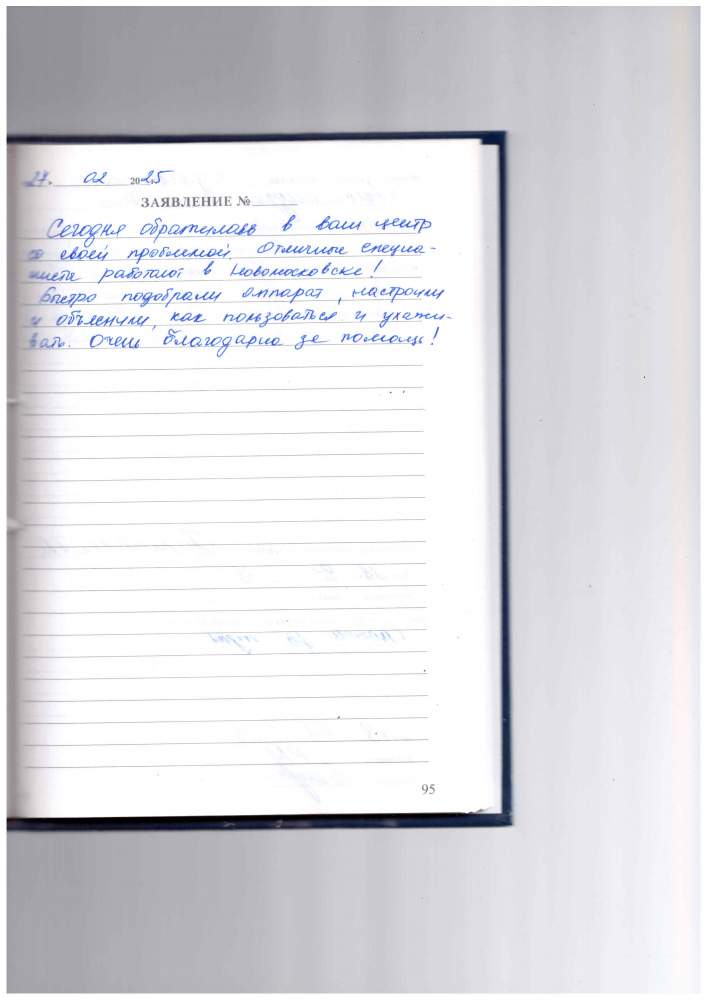 27. 02 2025
ЗАЯВЛЕНИЕ №
Сегодня обратилась в ваш центр
со своей проблемой. Отличные специа-
листы работают в Новомосковске!
Быстро подобрали аппарат, настроили
и объяснили, как пользоваться и ухажи-
вать. Очень благодарна за помощь!
95